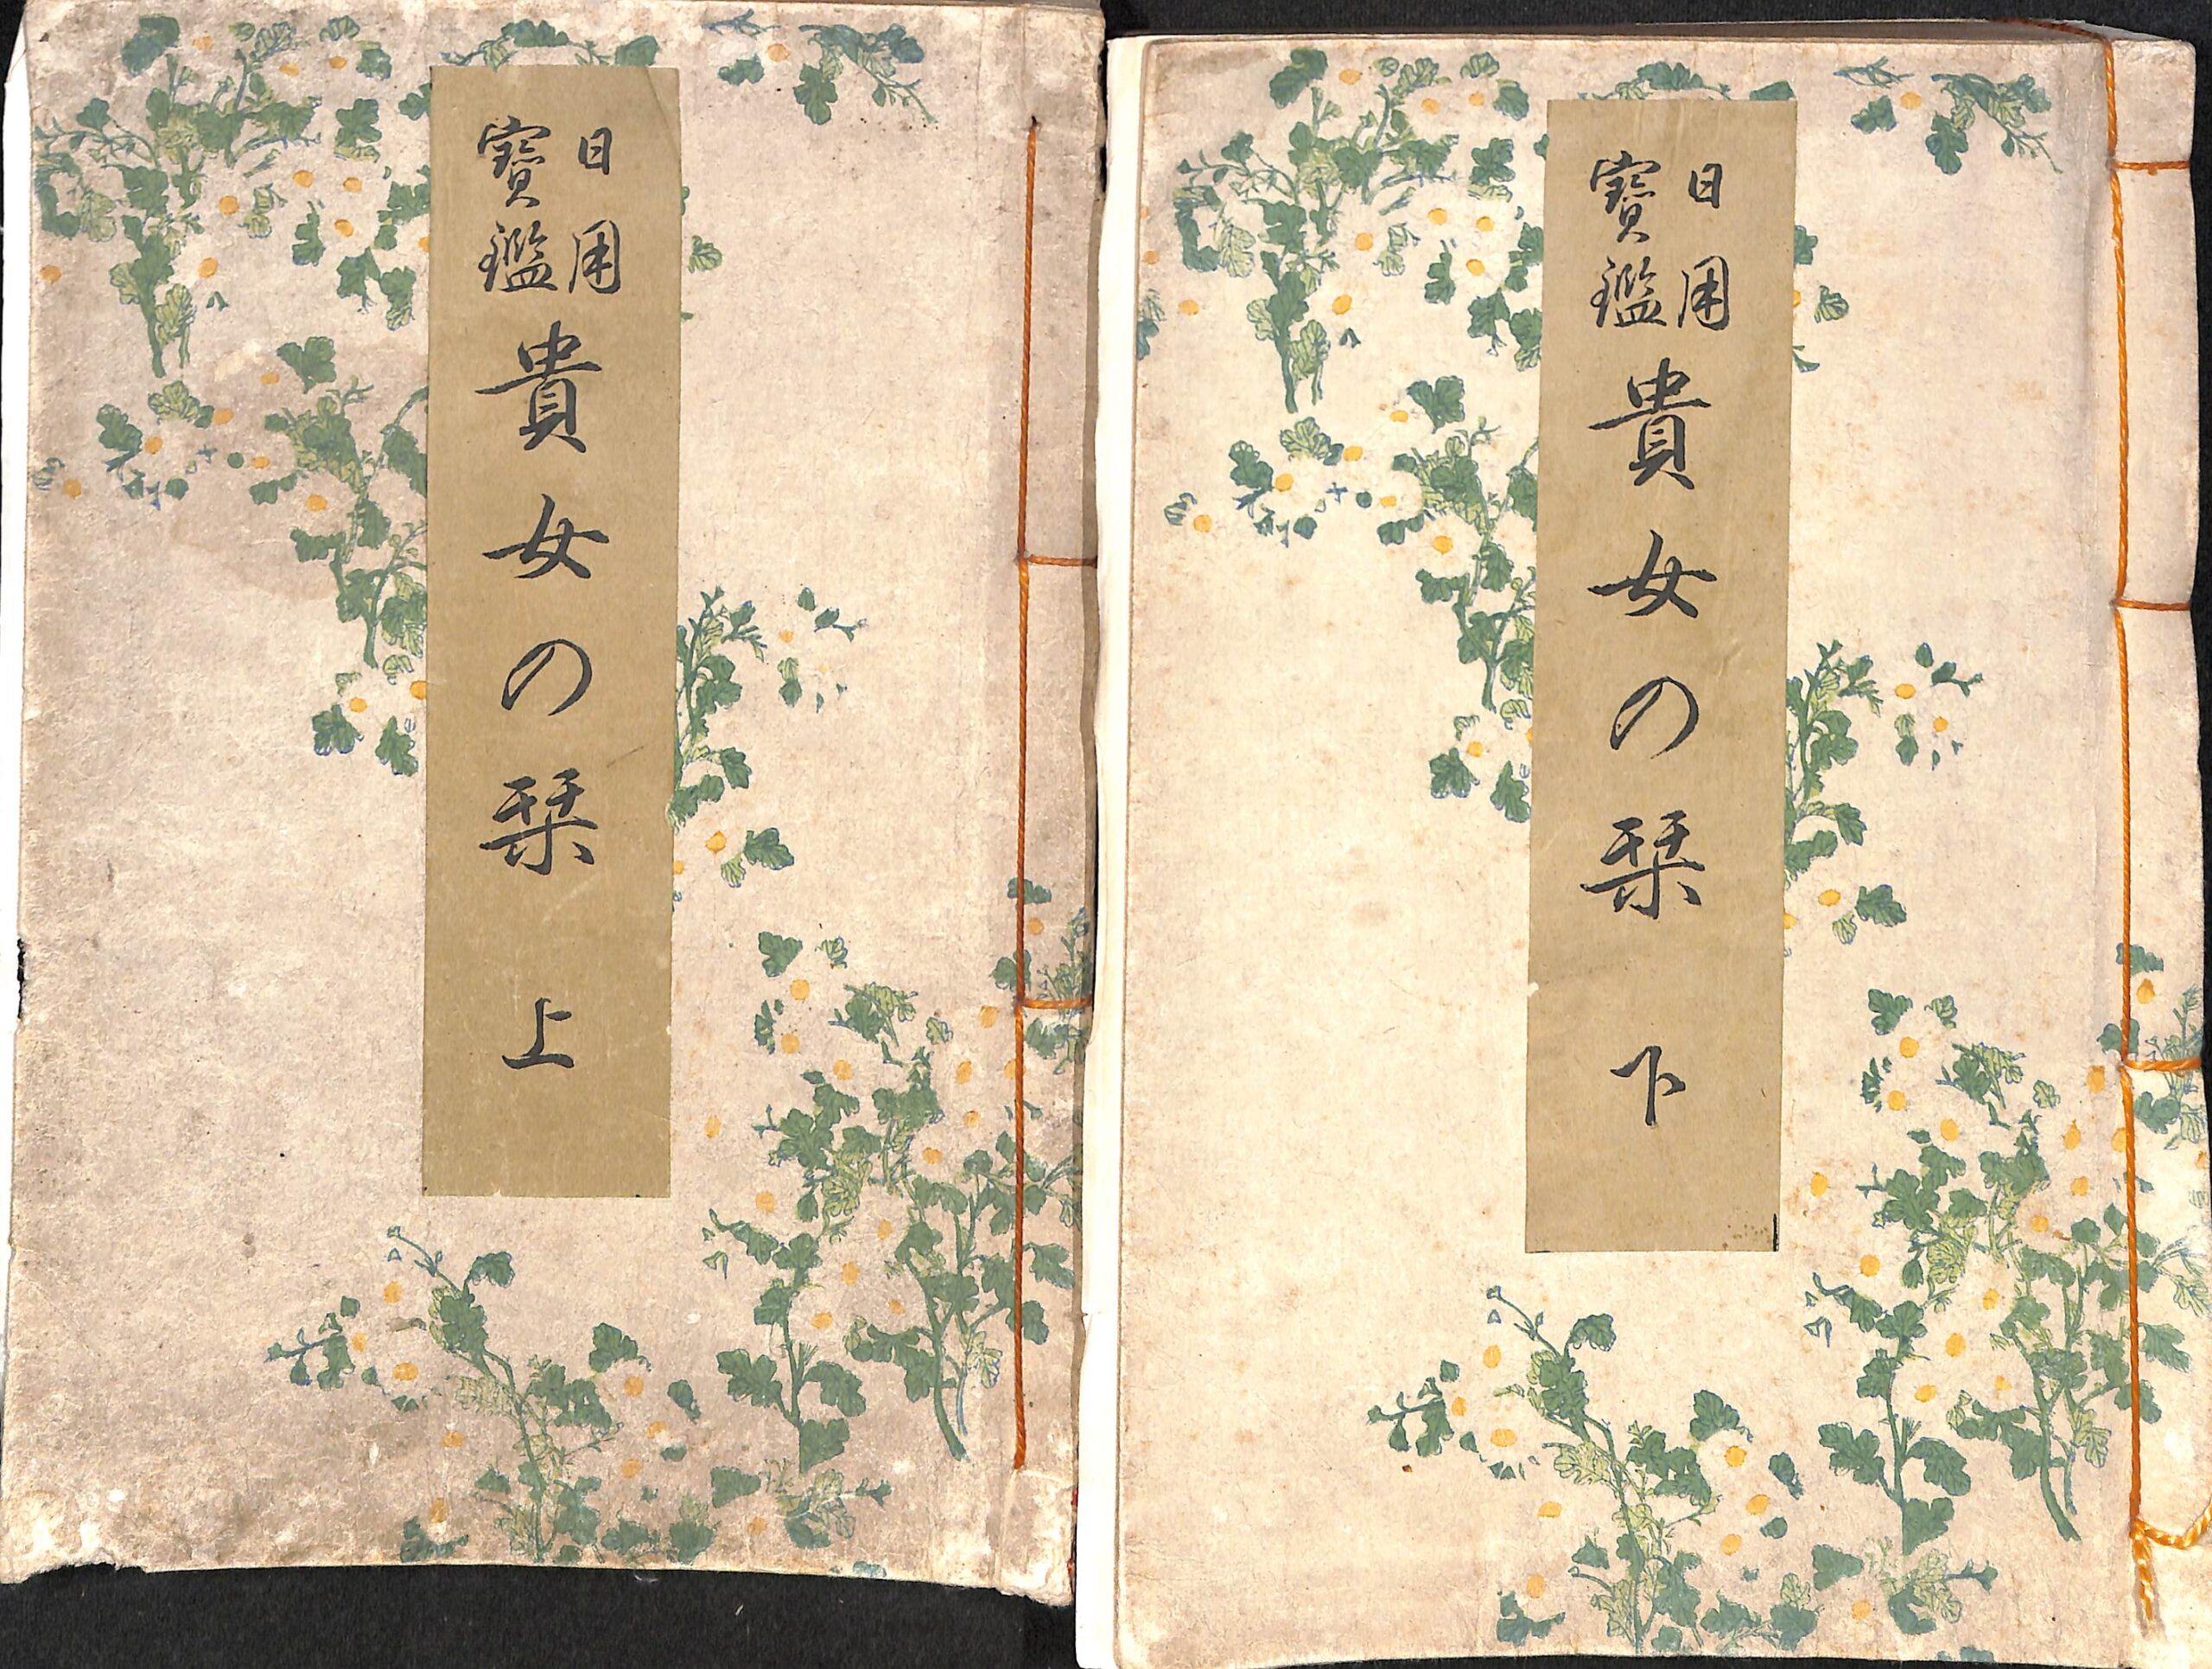 日用
寶鑑
貴女の栞 上
日用
寶鑑
貴女の栞 下